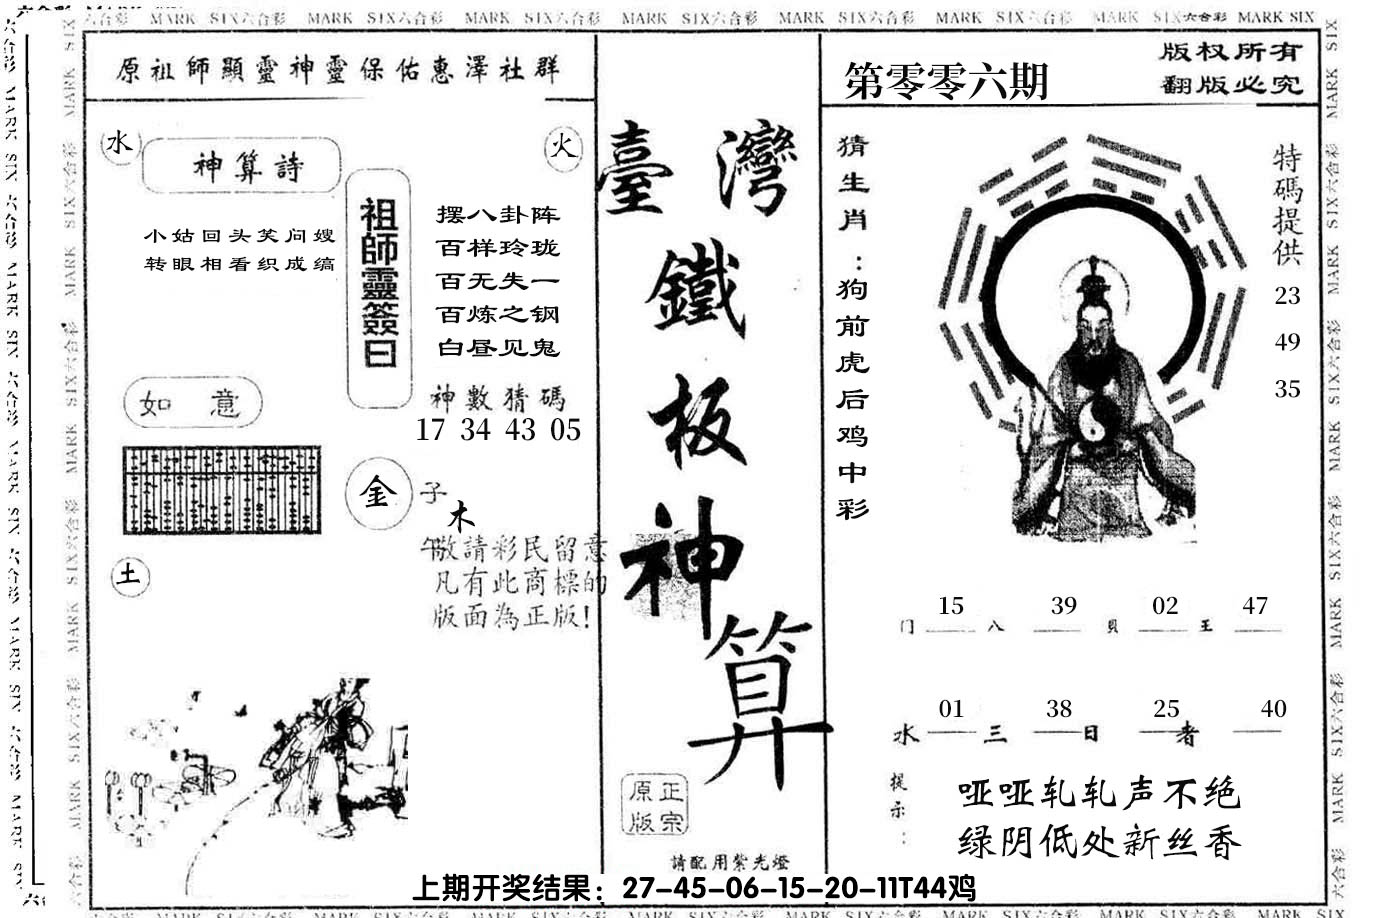 MARK SIX六合彩 MARK SIX六合彩 MARK SIX六合彩 MARK SIX六合彩 MARK SIX六合彩 MARK SIX六合彩 MARK SIX六合彩 MARK SIX
原祖師顯靈神靈保佑惠澤社群
水
神算詩
火
小姑回头笑问嫂
转眼相看织成缟
祖師靈簽曰
摆八卦阵
百样玲珑
百无失一
百炼之钢
白昼见鬼
神數猜碼
17 34 43 05
如意
金
子
木
午
土
敬請彩民留意
凡有此商標的
版面為正版!
臺灣
鐵
板
神
算
正宗
原版
請配用紫光燈
第零零六期
版权所有
翻版必究
猜生肖:狗前虎后鸡中彩
特碼提供
23
49
35
15 39 02 47
门 八 贝 王
01 38 25 40
水 三 日 者
提示:
哑哑轧轧声不绝
绿阴低处新丝香
上期开奖结果：27-45-06-15-20-11T44鸡